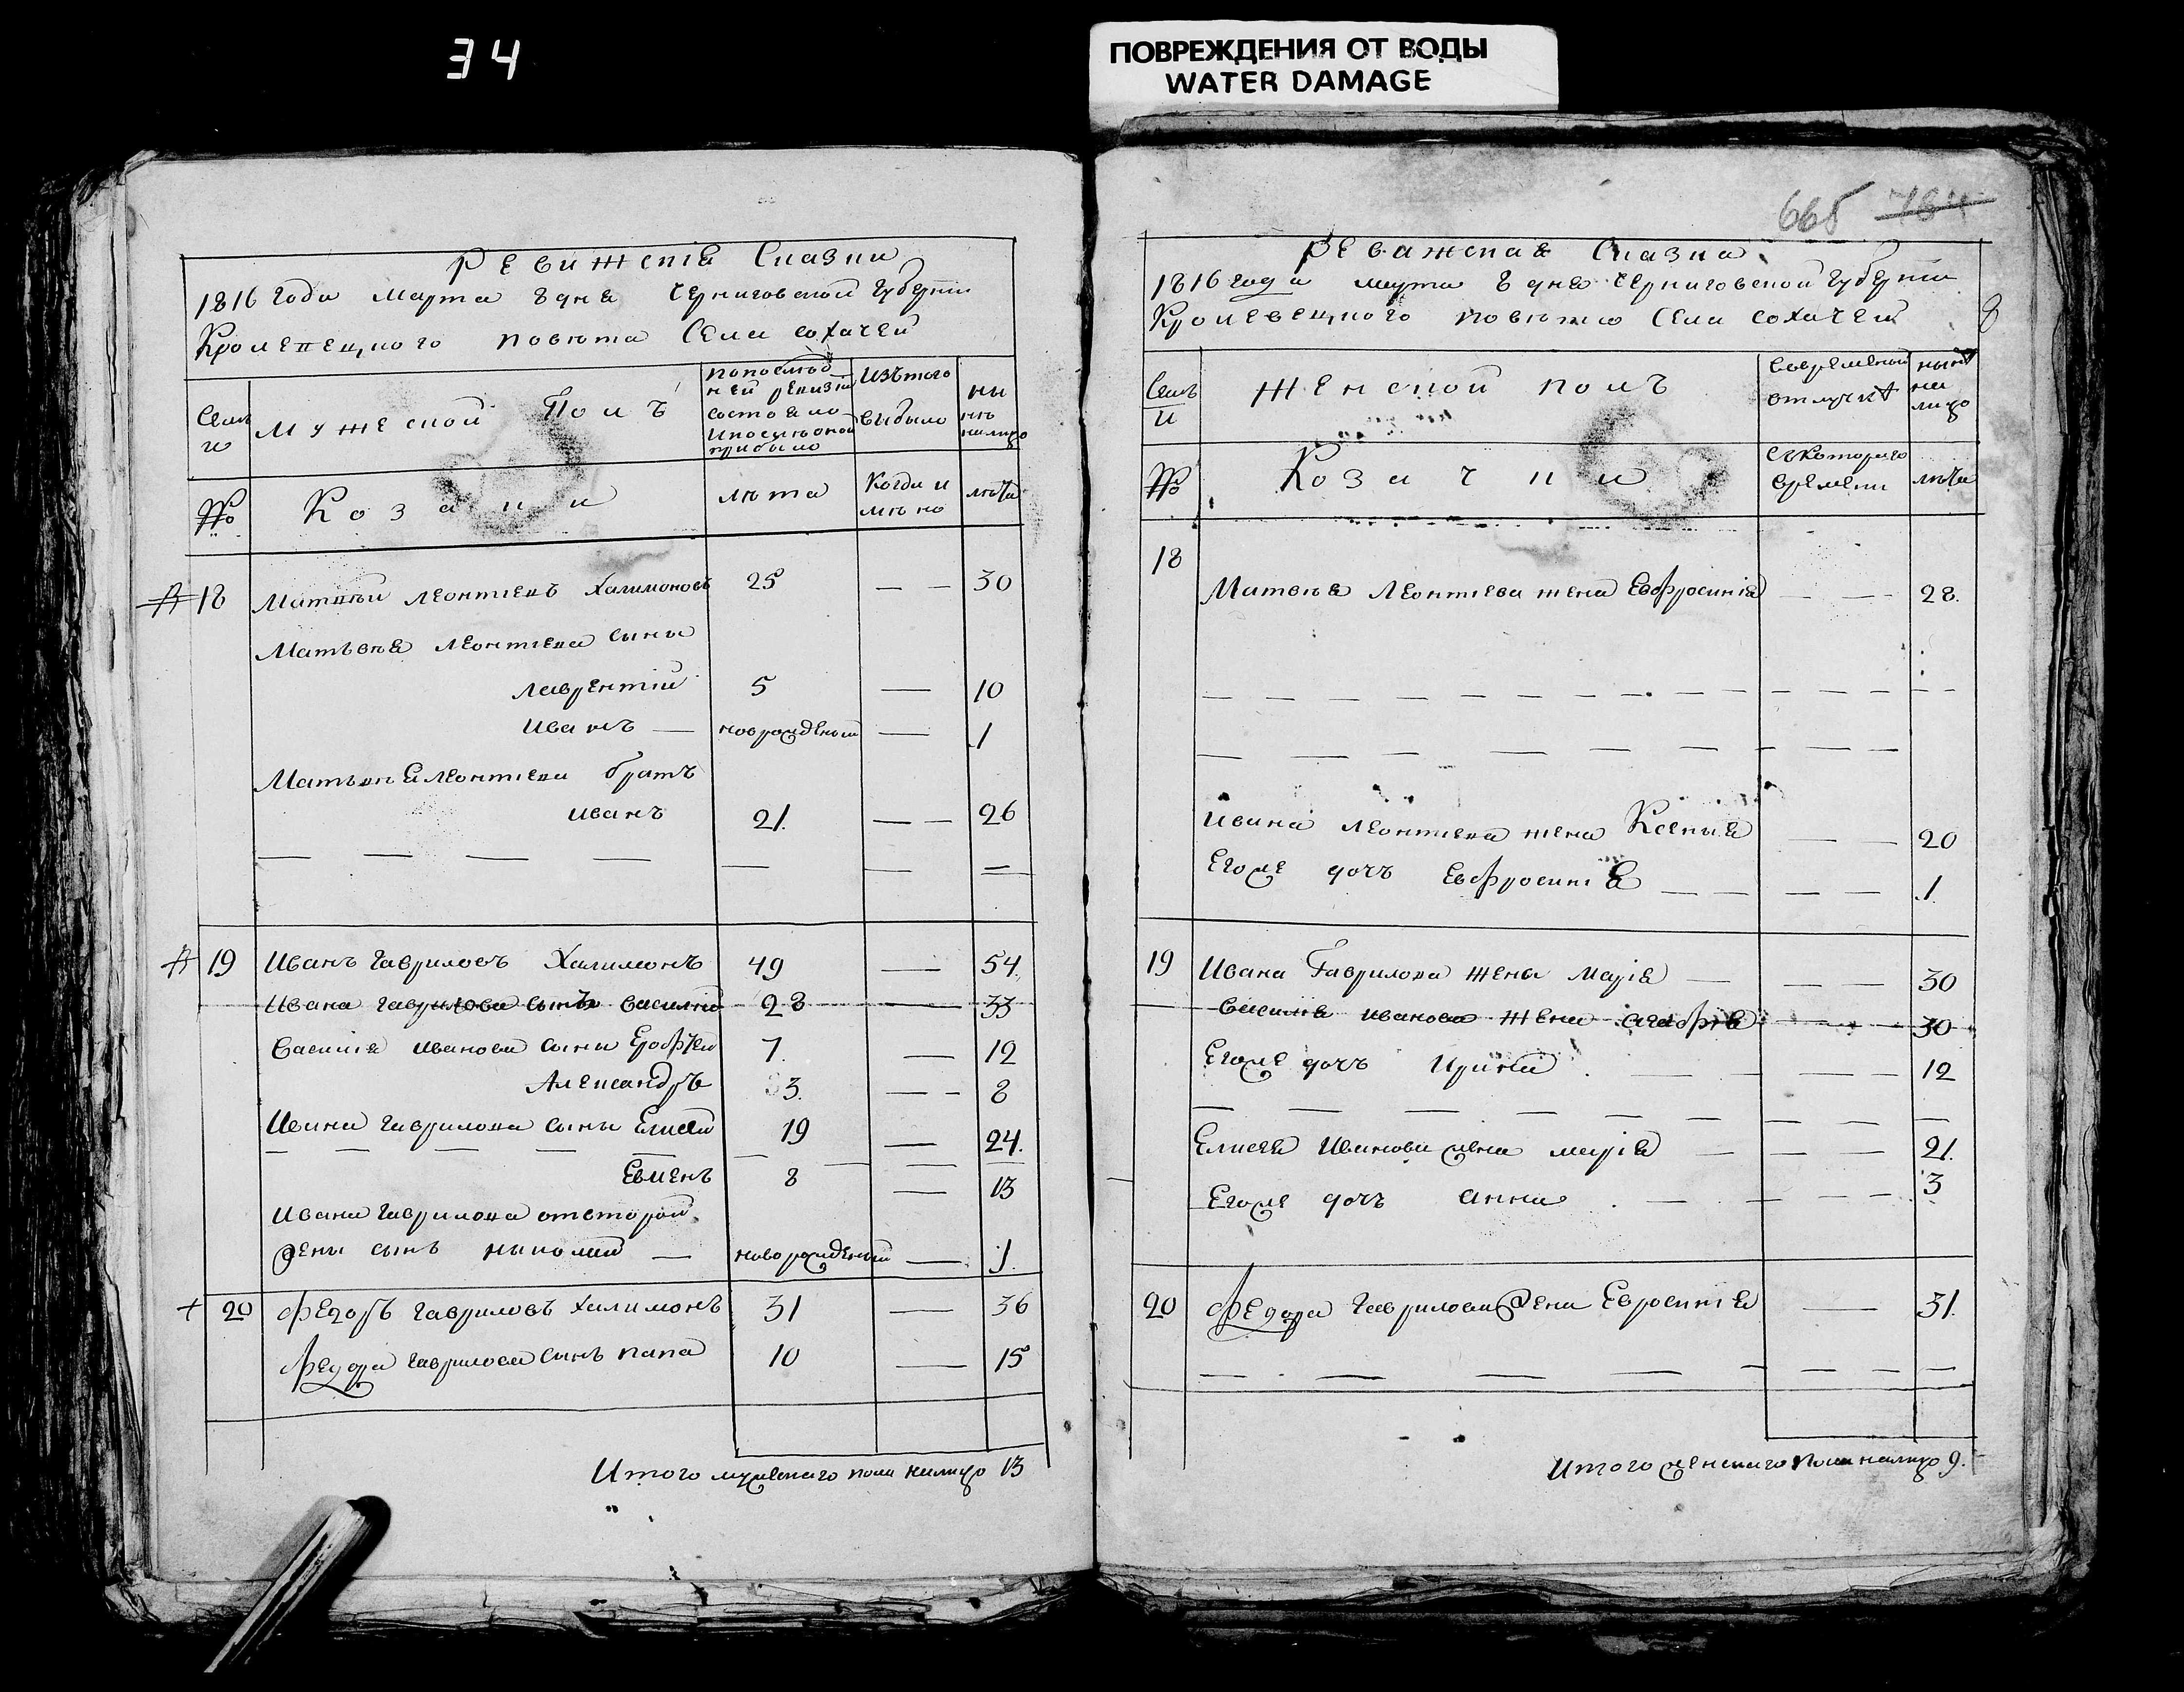 34
ПОВРЕЖДЕНИЯ ОТ ВОДЫ
WATER DAMAGE
Ревижскія Сказки
1816 года марта 8 дня Черниговской Губернии
Кролевецкого повюта Села Сохачей
Семи
№
Мужеской Полъ
Козаки
попослюдней ревизіи состояло и после оной прибыло
люта
Изътого выбыло
Когда и
ныню налицо
люта
18 Матвюй Леонтіевъ Халимоновъ 25 — — 30
Матъвюя Леонтіева сыны
Лаврентій 5 — 10
Иванъ — новрожденый — 1
Матъвюя Леонтіева братъ
Иванъ 21. — — 26
19 Иванъ Гавриловъ Халимонъ 49 — 54.
Ивана Гаврилова сынъ Василій 28 — 33
Василія Иванова сыны Ерофюй 7. — 12
Александръ 3. — - 8
Ивана Гаврилова сыны Елисей 19 — 24.
Евменъ 8 — 13
Ивана Гаврилова отвторой
жены сынъ Николай — новорожденый — 1.
20 Федоръ Гавриловъ Халимонъ 31 — 36
Федора Гаврилова сынъ 10 — 15
Итого мужескаго пола налицо 13
665 784
Ревижская Сказка
1816 года марта 8 дня Черниговской Губернии
Кролевецкого повюта Села Сохачей
8
Семи
№
Женской полъ
Козачки
Вовременной отлучкю
Съкотораго времени
ныню на лицо
люта
18
Матвюя Леонтіева жена Евфросинія — — 28.
Ивана Леонтіева жена Ксенія — — 20
Егоже дочъ Евфросинія — — — — 1.
19 Ивана Гаврилова жена Марія — — — 30
Василія Иванова жена Агафія — - — 30
Егоже дочъ Ирина . — — — — 12
Елисея Иванова жена Марія — — — 21.
Егоже дочъ Анна . — — — — 3
20 Федора Гаврилова жена Евросинія — 31.
Итого женскаго пола налицо 9.